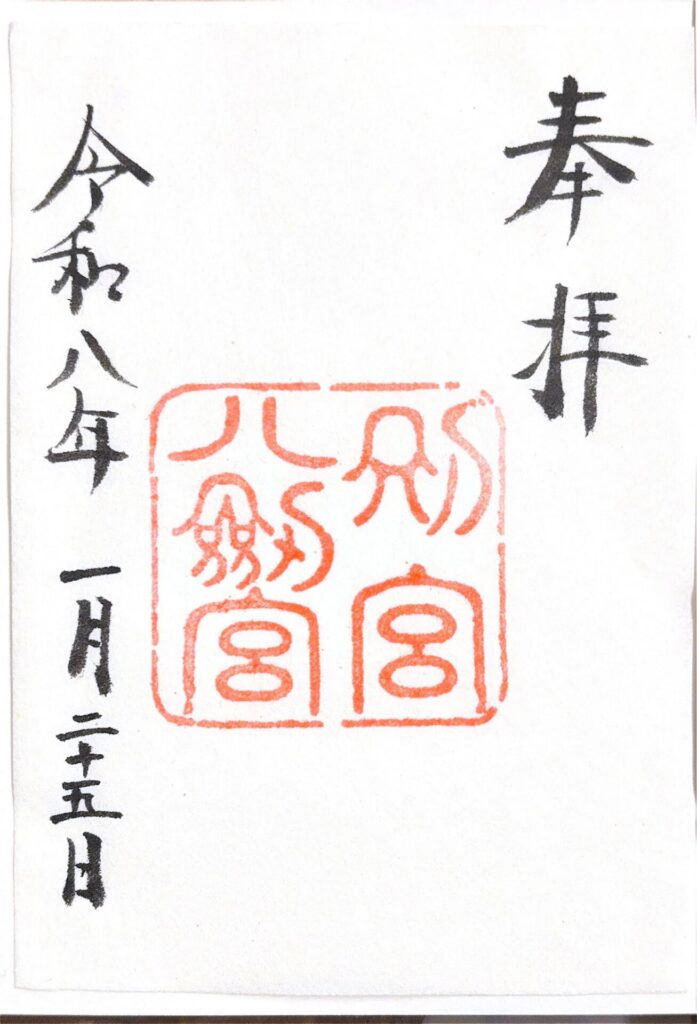 奉拝
別宮
八剱宮
令和八年 一月二十五日